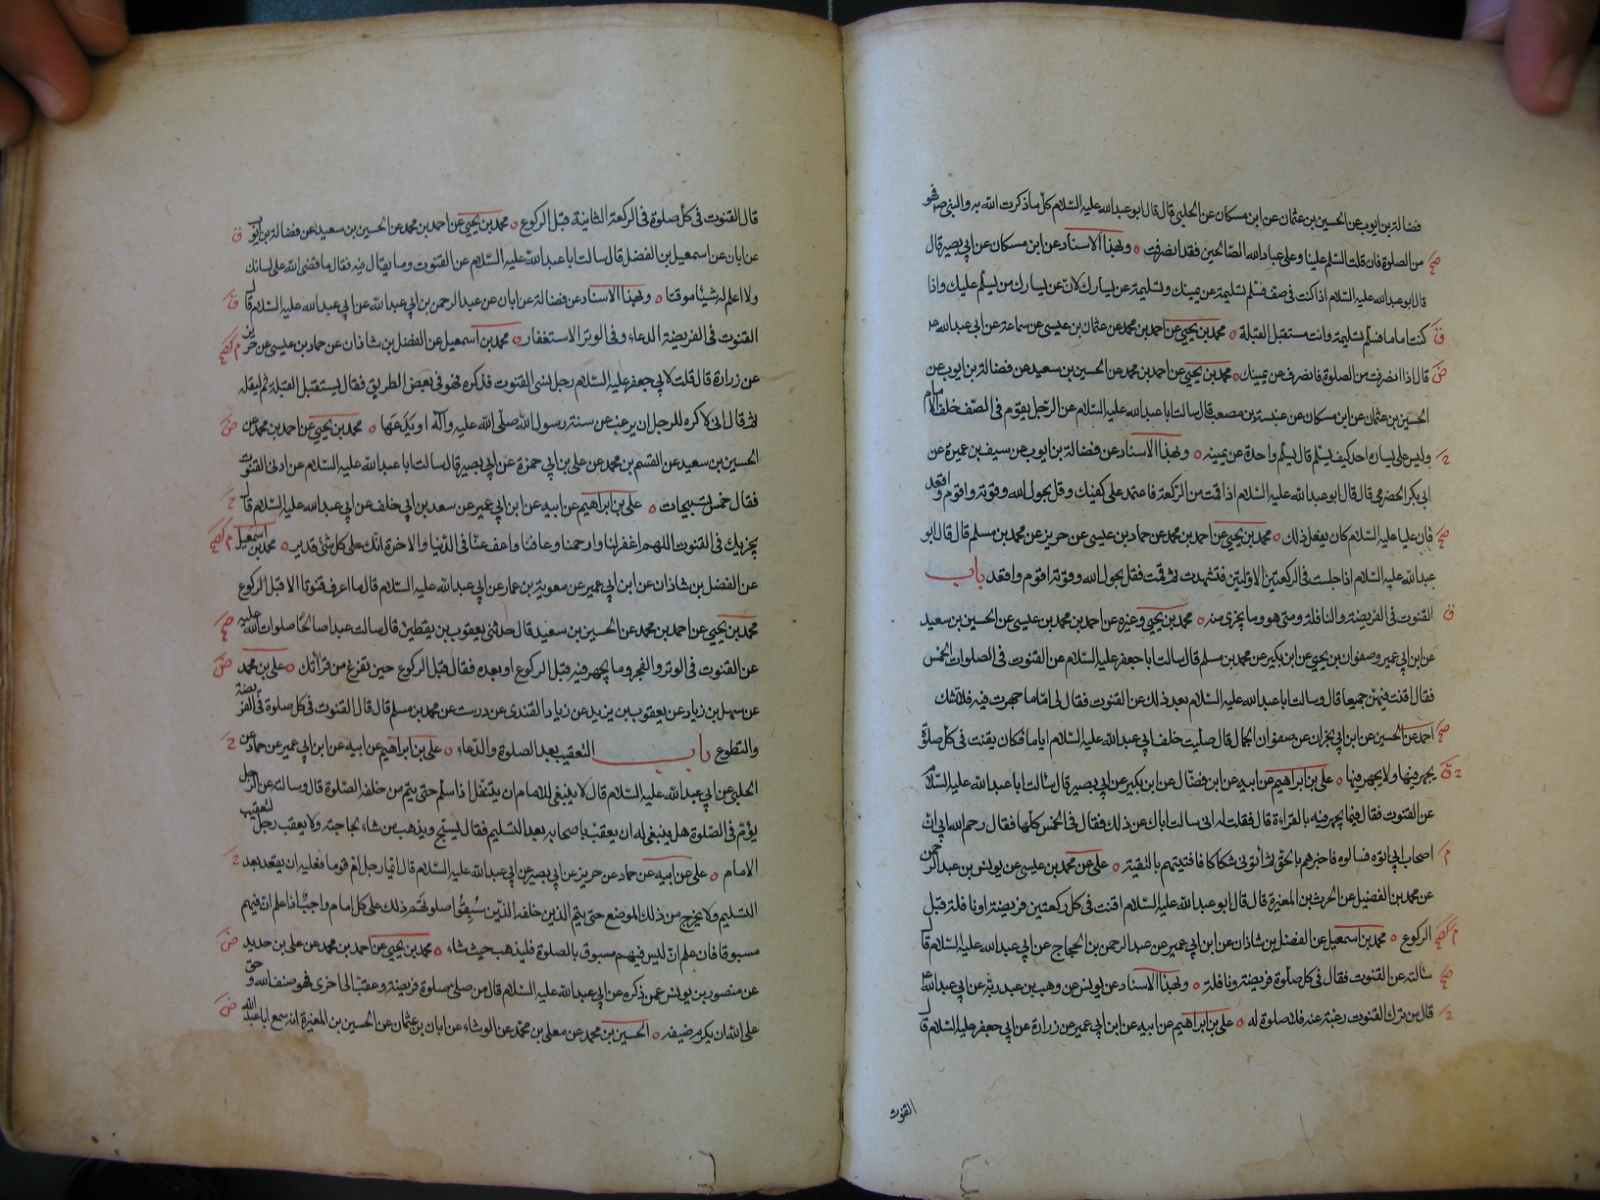 فضالة بن ايوب عن الحسين بن عثمان عن ابن مسكان عن الحلبي قال قال ابوعبدالله عليه السلام كل ما ذكرت الله به والنبي ص فهو
من الصلوة فان قلت السلم علينا وعلى عباد الله الصالحين فقد انصرفت ٥ وبهذا الاسناد عن ابن مسكان عن ابي بصير قال
قال ابوعبدالله عليه السلام اذا كنت في صف فسلم تسليمة عن يمينك وتسليمة عن يسارك لان عن يسارك من يسلم عليك واذا
كنت اماما فسلم تسليمة وانت مستقبل القبلة ٥ محمد بن يحيى عن احمد بن محمد عن عثمان بن عيسى عن سماعة عن ابي عبدالله عم
قال اذا انصرفت من الصلوة فانصرف عن يمينك ٥ محمد بن يحيى عن احمد بن محمد عن الحسين بن سعيد عن فضالة بن ايوب عن
الحسين بن عثمان عن ابن مسكان عن عنبسة بن مصعب قال سالت ابا عبدالله عليه السلام عن الرجل يقوم في الصف خلف الامام
وليس على يساره احد كيف يسلم قال يسلم واحدة عن يمينه ٥ وبهذا الاسناد عن فضالة بن ايوب عن سيف بن عميرة عن
ابي بكر الحضرمي قال قال ابوعبدالله عليه السلام اذا قمت من الركعة فاعتمد على كفيك وقل بحول الله وقوته اقوم واقعد
فان عليا عليه السلام كان يفعل ذلك ٥ محمد بن يحيى عن احمد بن محمد عن حماد بن عيسى عن حريز عن محمد بن مسلم قال قال ابو
عبدالله عليه السلام اذا جلست في الركعتين الاوليين فتشهدت ثم قمت فقل بحول الله وقوته اقوم واقعد باب
القنوت في الفريضة والنافلة ومتى هو وما يجزي منه ٥ محمد بن يحيى وغيره عن احمد بن محمد بن عيسى عن الحسين بن سعيد
عن ابن ابي عمير وصفوان بن يحيى عن ابن بكير عن محمد بن مسلم قال سالت ابا جعفر عليه السلام عن القنوت في الصلوات الخمس
فقال اقنت فيهن جميعا قال وسالت ابا عبدالله عليه السلام بعد ذلك عن القنوت فقال لي اما ما جهرت فيه فلا تشك
احمد عن الحسين عن ابن ابي نجران عن صفوان الجمال قال صليت خلف ابي عبدالله عليه السلام اياما فكان يقنت في كل صلوة
يجهر فيها ولا يجهر فيها ٥ علي بن ابراهيم عن ابيه عن ابن فضال عن ابن بكير عن ابي بصير قال سالت ابا عبدالله عليه السلام
عن القنوت فقال فيما يجهر فيه بالقراءة قال فقلت له اني سالت اباك عن ذلك فقال في الخمس كلها فقال رحم الله ابي ان
اصحاب ابي اتوه فسالوه فاخبرهم بالحق ثم اتوني شكاكا فافتيتهم بالتقية ٥ علي عن محمد بن عيسى عن يونس بن عبدالرحمن
عن محمد بن الفضيل عن الحرث بن المغيرة قال قال ابوعبدالله عليه السلام اقنت في كل ركعتين فريضة او نافلة قبل
الركوع ٥ محمد بن اسمعيل عن الفضل بن شاذان عن ابن ابي عمير عن عبدالرحمن بن الحجاج عن ابي عبدالله عليه السلام قال
سالته عن القنوت فقال في كل صلوة فريضة ونافلة ٥ وبهذا الاسناد عن يونس عن وهب بن عبد ربه عن ابي عبدالله ع
قال من ترك القنوت رغبة عنه فلا صلوة له ٥ علي بن ابراهيم عن ابيه عن ابن ابي عمير عن ابن اذينة عن زرارة عن ابي جعفر عليه السلام قال
القنوت
قال القنوت في كل صلوة في الركعة الثانية قبل الركوع ٥ محمد بن يحيى عن احمد بن محمد عن الحسين بن سعيد عن فضالة بن ايوب
عن ابان عن اسمعيل بن الفضل قال سالت ابا عبدالله عليه السلام عن القنوت وما يقال فيه فقال ما قضى الله على لسانك
ولا اعلم له شيئا موقتا ٥ وبهذا الاسناد عن فضالة عن ابان عن عبدالرحمن بن ابي عبدالله عن ابي عبدالله عليه السلام قال
القنوت في الفريضة الدعاء وفي الوتر الاستغفار ٥ محمد بن اسمعيل عن الفضل بن شاذان عن حماد بن عيسى عن حريز
عن زرارة قال قلت لابي جعفر عليه السلام رجل نسي القنوت فذكره فهو في بعض الطريق فقال يستقبل القبلة ثم ليقله
ثم قال اني لاكره للرجل ان يرغب عن سنة رسول الله صلى الله عليه وآله او يدعها ٥ محمد بن يحيى عن احمد بن محمد عن
الحسين بن سعيد عن القسم بن محمد عن علي بن ابي حمزة عن ابي بصير قال سالت ابا عبدالله عليه السلام عن ادنى القنوت
فقال خمس تسبيحات ٥ علي بن ابراهيم عن ابيه عن ابن ابي عمير عن سعد بن ابي خلف عن ابي عبدالله عليه السلام قال
يجزيك في القنوت اللهم اغفر لنا وارحمنا وعافنا واعف عنا في الدنيا والاخرة انك على كل شئ قدير ٥ محمد بن اسمعيل
عن الفضل بن شاذان عن ابن ابي عمير عن معوية بن عمار عن ابي عبدالله عليه السلام قال ما اعرف قنوتا الا قبل الركوع
محمد بن يحيى عن احمد بن محمد عن الحسين بن سعيد قال حدثني يعقوب بن يقطين قال سالت عبدا صالحا صلوات الله عليه
عن القنوت في الوتر والفجر وما يجهر فيه قبل الركوع او بعده فقال قبل الركوع حين تفرغ من قرائتك ٥ علي بن محمد
عن سهل بن زياد عن يعقوب بن يزيد عن زياد القندي عن درست عن محمد بن مسلم قال قال القنوت في كل صلوة في الفريضة
والتطوع باب التعقيب بعد الصلوة والدعاء ٥ علي بن ابراهيم عن ابيه عن ابن ابي عمير عن حماد عن
الحلبي عن ابي عبدالله عليه السلام قال لا ينبغي للامام ان يتنفل اذا سلم حتى يتم من خلفه الصلوة قال وسالته عن الرجل
يؤم في الصلوة هل ينبغي له ان يعقب باصحابه بعد التسليم فقال يسبح ويذهب من شاء لحاجته ولا يعقب رجل لتعقيب
الامام ٥ علي عن ابيه عن حماد عن حريز عن ابي بصير عن ابي عبدالله عليه السلام قال ايما رجل ام قوما فعليه ان يقعد بعد
التسليم ولا يخرج من ذلك الموضع حتى يتم الذين خلفه الذين سبقوا صلوتهم ذلك على كل امام واجب اذا علم ان فيهم
مسبوقا فان علم ان ليس فيهم مسبوق بالصلوة فليذهب حيث شاء ٥ محمد بن يحيى عن احمد بن محمد عن علي بن حديد
عن منصور بن يونس عمن ذكره عن ابي عبدالله عليه السلام قال من صلى صلوة فريضة وعقب الى اخرى فهو ضيف الله وحق
على الله ان يكرم ضيفه ٥ الحسين بن محمد عن معلى بن محمد عن الوشاء عن ابان بن عثمان عن الحسين بن المغيرة انه سمع ابا عبدالله